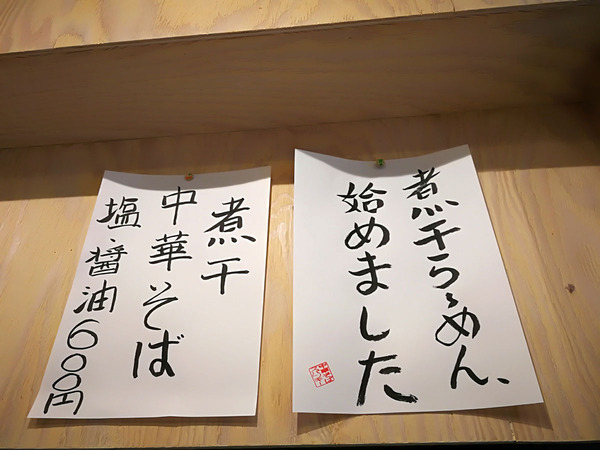 煮干らぁめん、
始めました
煮干
中華そば
塩・醤油600円